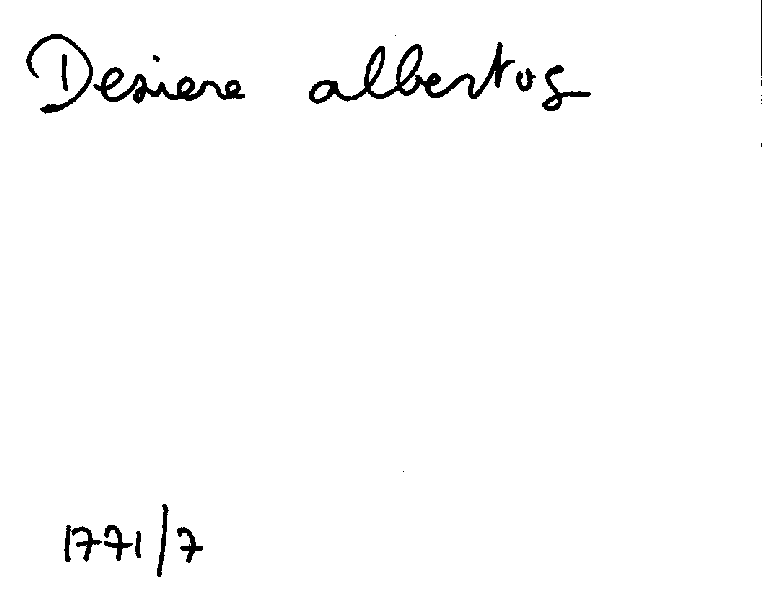 Desiere albertus
1771/7